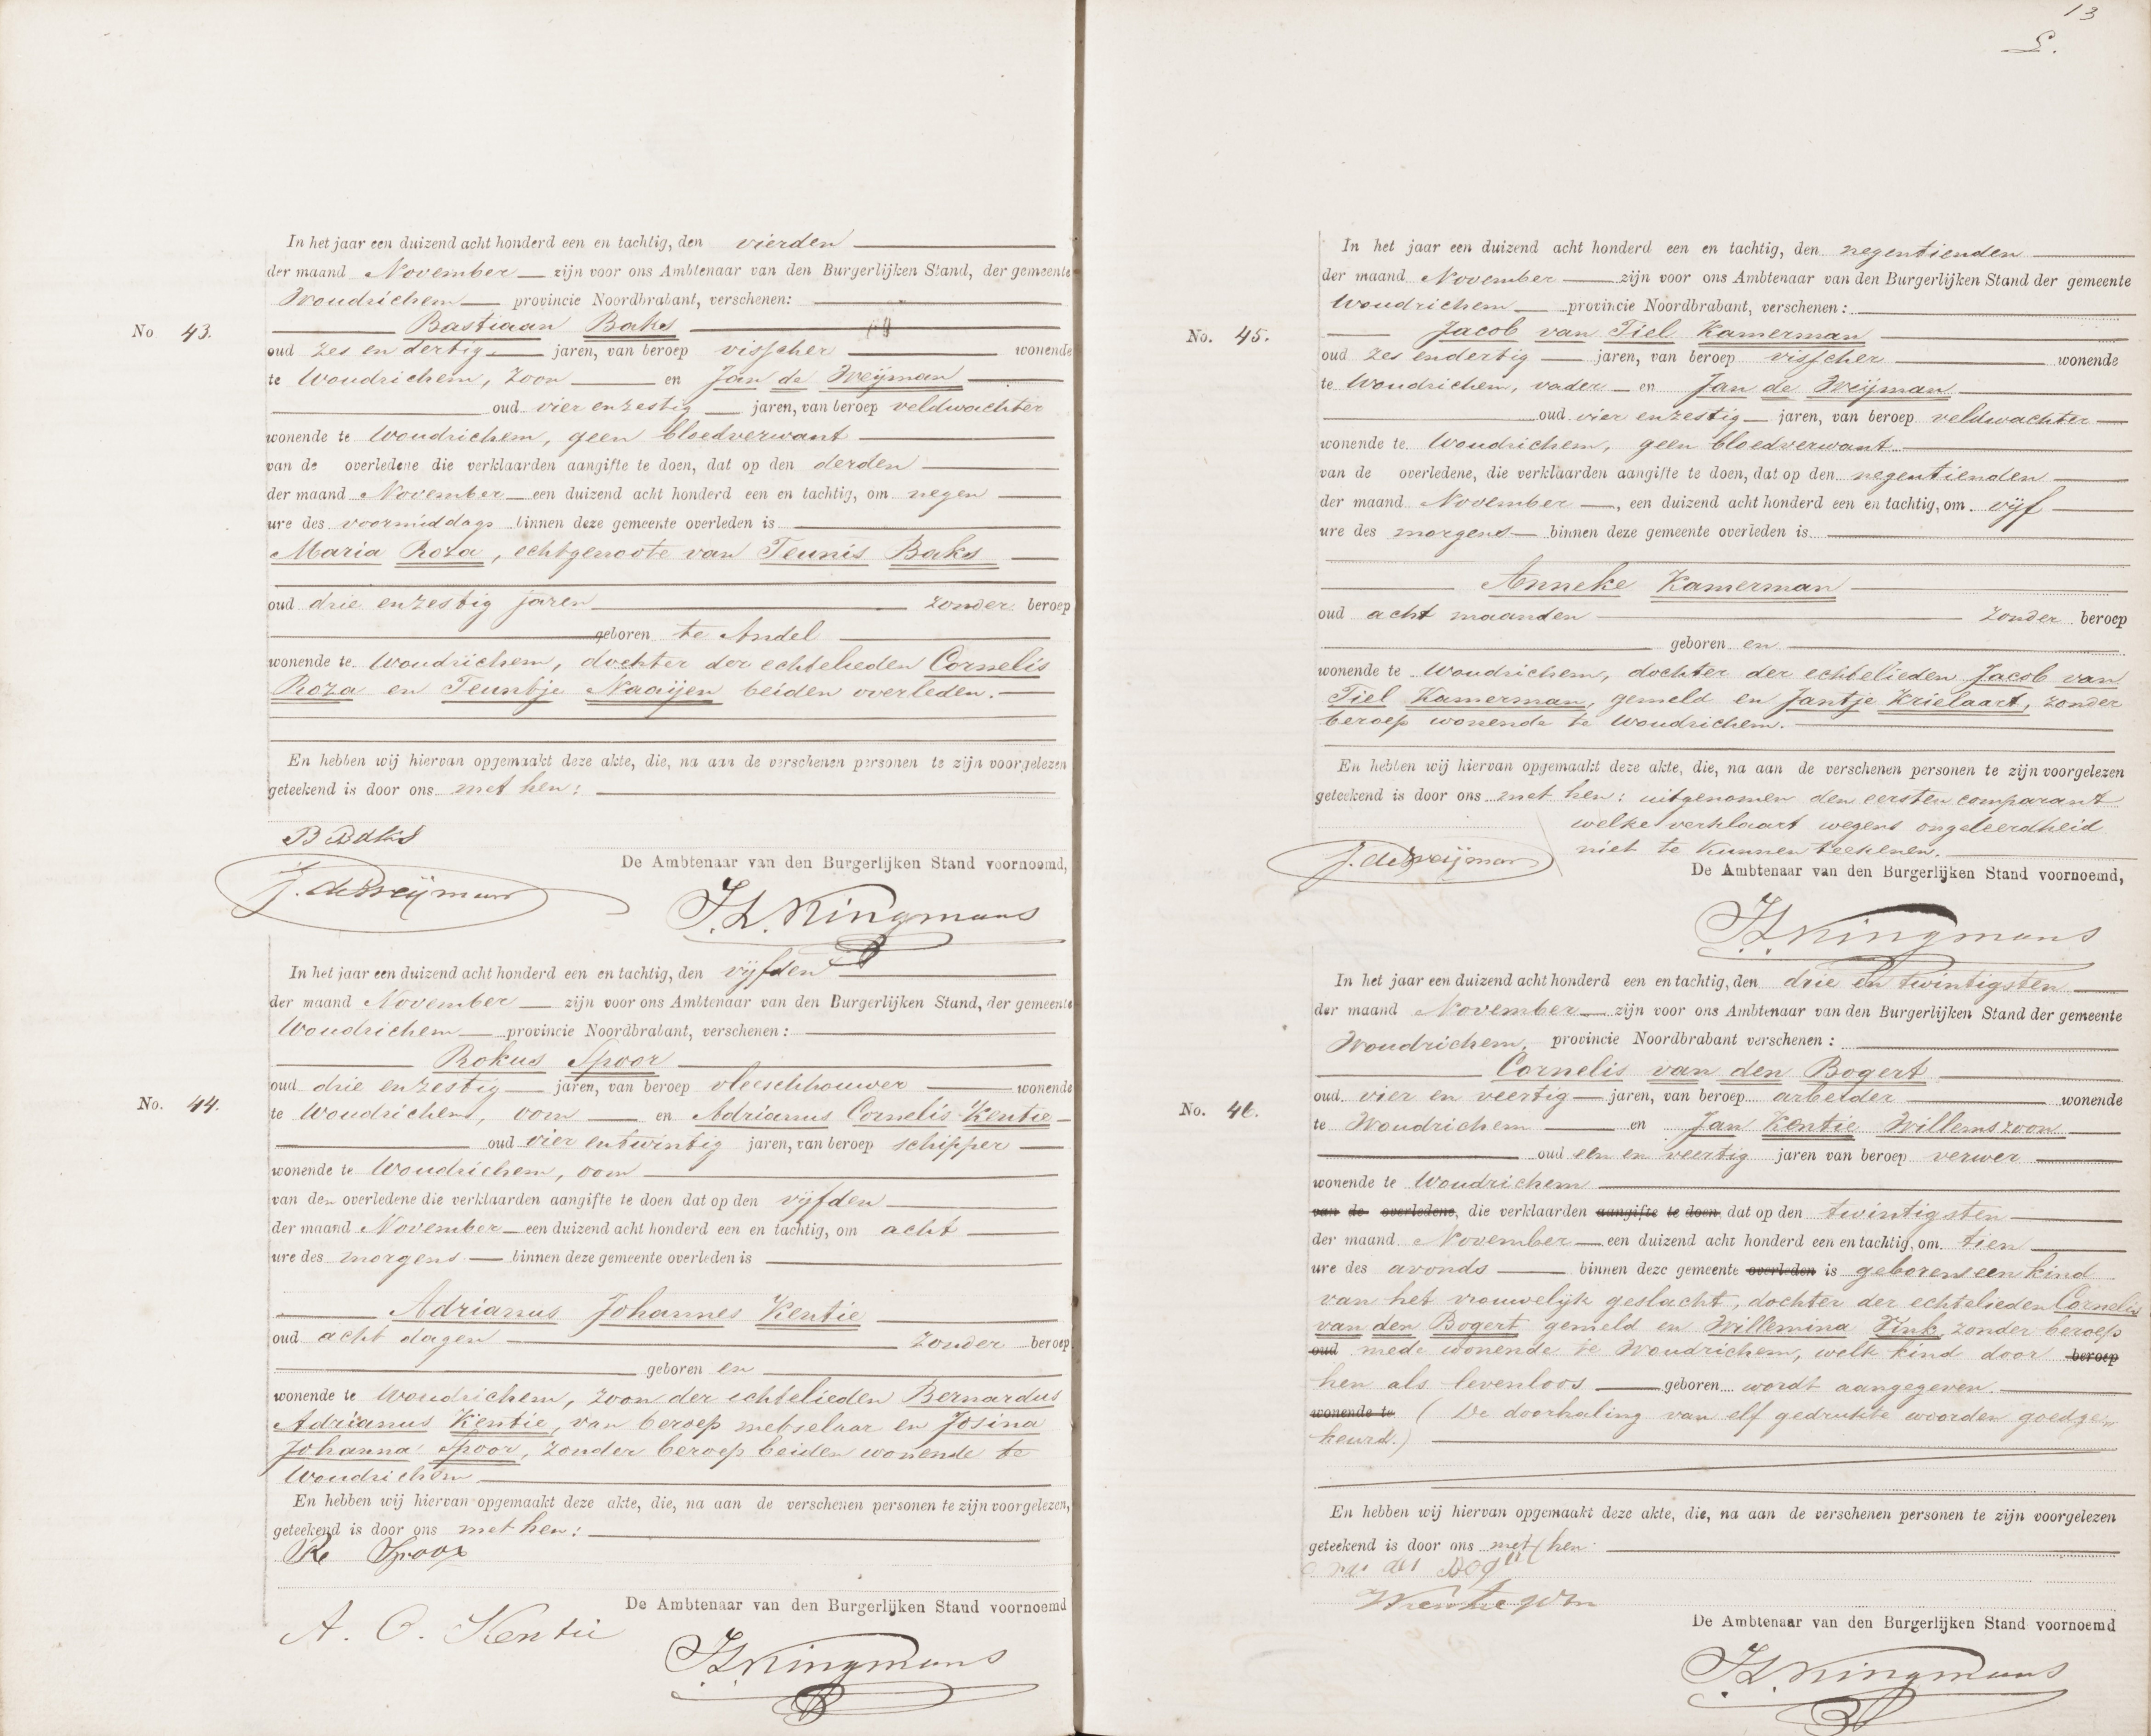 In het jaar een duizend acht honderd een en tachtig, den vierden
der maand November zijn voor ons Ambtenaar van den Burgerlijken Stand, der gemeente
Woudrichem provincie Noordbrabant, verschenen:
Bastiaan Baks
No 43.
oud zes en dertig jaren, van beroep visscher wonende
te Woudrichem, zoon en Jan de Weijman
oud vier en zestig jaren, van beroep veldwachter
wonende te Woudrichem, geen bloedverwant
van de overledene die verklaarden aangifte te doen, dat op den derden
der maand November een duizend acht honderd een en tachtig, om negen
ure des voormiddags binnen deze gemeente overleden is
Maria Roza, echtgenoote van Teunis Baks
oud drie en zestig jaren zonder beroep
geboren te Andel
wonende te Woudrichem, dochter der echtelieden Cornelis
Roza en Teuntje Naaijen beiden overleden.
En hebben wij hiervan opgemaakt deze akte, die, na aan de verschenen personen te zijn voorgelezen
geteekend is door ons met hen:
B Baks
De Ambtenaar van den Burgerlijken Stand voornoemd,
J. de Weijman
In het jaar een duizend acht honderd een en tachtig, den vijfden
der maand November zijn voor ons Ambtenaar van den Burgerlijken Stand, der gemeente
Woudrichem provincie Noordbrabant, verschenen:
Rokus Spoor
oud drie en zestig jaren, van beroep vleeschhouwer wonende
No. 44.
te Woudrichem, oom en Adrianus Cornelis Kentie
oud vier en twintig jaren, van beroep schipper
wonende te Woudrichem, oom
van den overledene die verklaarden aangifte te doen dat op den vijfden
der maand November een duizend acht honderd een en tachtig, om acht
ure des morgens binnen deze gemeente overleden is
Adrianus Johannes Kentie
oud acht dagen zonder beroep
geboren en
wonende te Woudrichem, zoon der echtelieden Bernardus
Adrianus Kentie, van beroep metselaar en Josina
Johanna Spoor, zonder beroep beiden wonende te
Woudrichem
En hebben wij hiervan opgemaakt deze akte, die, na aan de verschenen personen te zijn voorgelezen,
geteekend is door ons met hen:
R Spoor
De Ambtenaar van den Burgerlijken Stand voornoemd
A. C. Kentie
13
In het jaar een duizend acht honderd een en tachtig, den negentienden
der maand November zijn voor ons Ambtenaar van den Burgerlijken Stand der gemeente
Woudrichem provincie Noordbrabant, verschenen:
Jacob van Tiel Kamerman
No. 45.
oud zes en dertig jaren, van beroep visscher wonende
te Woudrichem, vader en Jan de Weijman
oud vier en zestig jaren, van beroep veldwachter
wonende te Woudrichem, geen bloedverwant
van de overledene, die verklaarden aangifte te doen, dat op den negentienden
der maand November, een duizend acht honderd een en tachtig, om vijf
ure des morgens binnen deze gemeente overleden is
Anneke Kamerman
oud acht maanden zonder beroep
geboren en
wonende te Woudrichem, dochter der echtelieden Jacob van
Tiel Kamerman, gemeld en Jantje Krielaart, zonder
beroep wonende te Woudrichem.
En hebben wij hiervan opgemaakt deze akte, die, na aan de verschenen personen te zijn voorgelezen
geteekend is door ons met hen: uitgenomen den eersten comparant
welke verklaart wegens ongeleerdheid
niet te kunnen teekenen.
J. de Weijman
De Ambtenaar van den Burgerlijken Stand voornoemd,
In het jaar een duizend acht honderd een en tachtig, den drie en twintigsten
der maand November zijn voor ons Ambtenaar van den Burgerlijken Stand der gemeente
Woudrichem, provincie Noordbrabant verschenen:
Cornelis van den Bogert
oud vier en veertig jaren, van beroep arbeider wonende
No. 46.
te Woudrichem en Jan Kentie Willemszoon
oud een en veertig jaren van beroep verwer
wonende te Woudrichem
van de overledene, die verklaarden aangifte te doen dat op den twintigsten
der maand November een duizend acht honderd een en tachtig, om tien
ure des avonds binnen deze gemeente overleden is geboren een kind
van het vrouwelijk geslacht, dochter der echtelieden Cornelis
van den Bogert gemeld en Willemina Vink, zonder beroep
oud mede wonende te Woudrichem, welk kind door beroep
hen als levenloos geboren wordt aangegeven.
wonende te (De doorhaling van elf gedrukte woorden goedge-
keurd.)
En hebben wij hiervan opgemaakt deze akte, die, na aan de verschenen personen te zijn voorgelezen
geteekend is door ons met hen
De Ambtenaar van den Burgerlijken Stand voornoemd